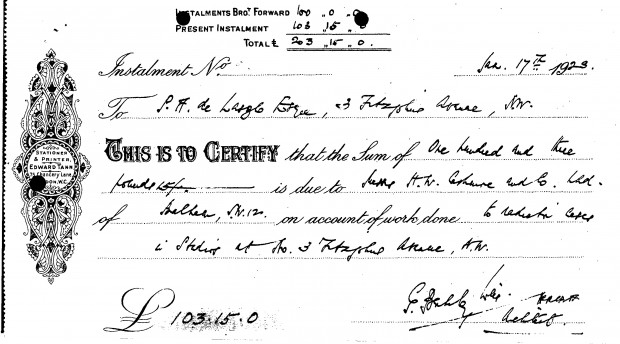 INSTALMENTS BROT. FORWARD 100 " 0 " 0
PRESENT INSTALMENT 103 15 " 0
TOTAL £ 203 " 15 " 0.
Instalment No. Jan. 17th 1923.
To P. A. de Laszlo Esque, 3 Fitzjohns Avenue, N.W.
THIS IS TO CERTIFY that the Sum of One hundred and three
pounds 15/- is due to Messrs H. W. and Co. Ltd.
of Balham, S.W.12 on account of work done to radiator
in Studio at No. 3 Fitzjohns Avenue, N.W.
£ 103.15.0
Architect
STATIONER
& PRINTER,
EDWARD TANN
Chancery Lane,